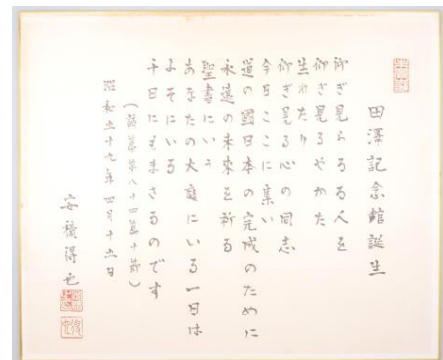 田澤記念館誕生
仰ぎ見らるる人を
仰ぎ見るやかた
生れたり
仰ぎ見る心の同志
今日ここに集い
道の國日本の完成のために
永遠の未来を祈る
聖書にいう
あなたの大庭にいる一日は
よそにいる
千日にもまさるのです
(詩篇第八十四篇十節)
昭和五十九年四月十六日
安積得也